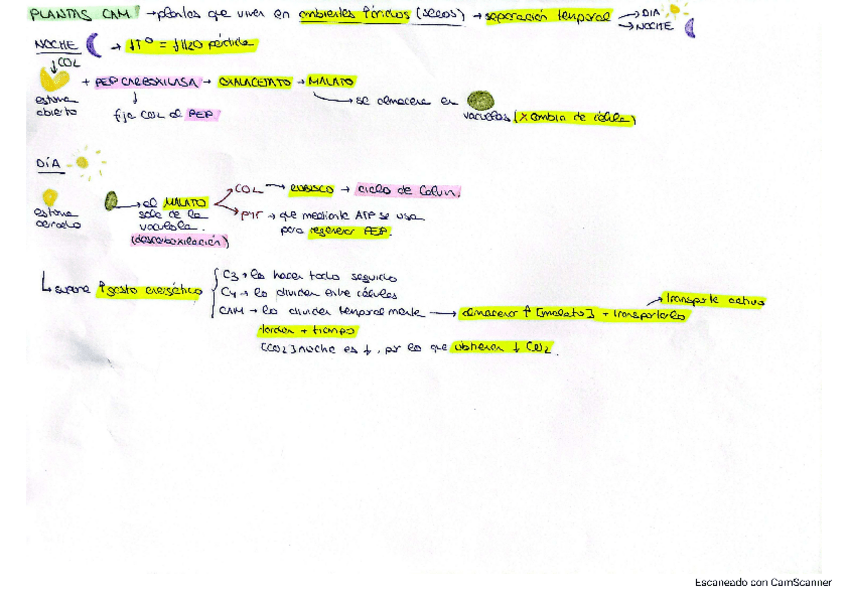 PLANTAS CAM → plantas que viven en ambientes áridos (secos) → separación temporal → DIA
→ NOCHE
NOCHE → ↓Tº = ↓H2O pérdida
↓CO2
+ PEP CARBOXILASA → OXALACETATO → MALATO
estoma abierto
↓
fija CO2 al PEP
→ se almacena en vacuolas (X cambia de célula)
DÍA
estoma cerrado
→ el MALATO sale de la vacuola.
(descarboxilación)
→ CO2 → RUBISCO → ciclo de Calvin.
→ PYR → que mediante ATP se usa
para regenerar PEP.
↳ supone ↑gasto energético
C3 → lo hacen todo seguido
C4 → lo dividen entre células
CAM → lo dividen temporalmente → almacenar ↑ [malato] + transportarlo
→ transporte activo
tardan + tiempo
[CO2] noche es ↓, por lo que obtienen ↓ CO2.
Escaneado con CamScanner